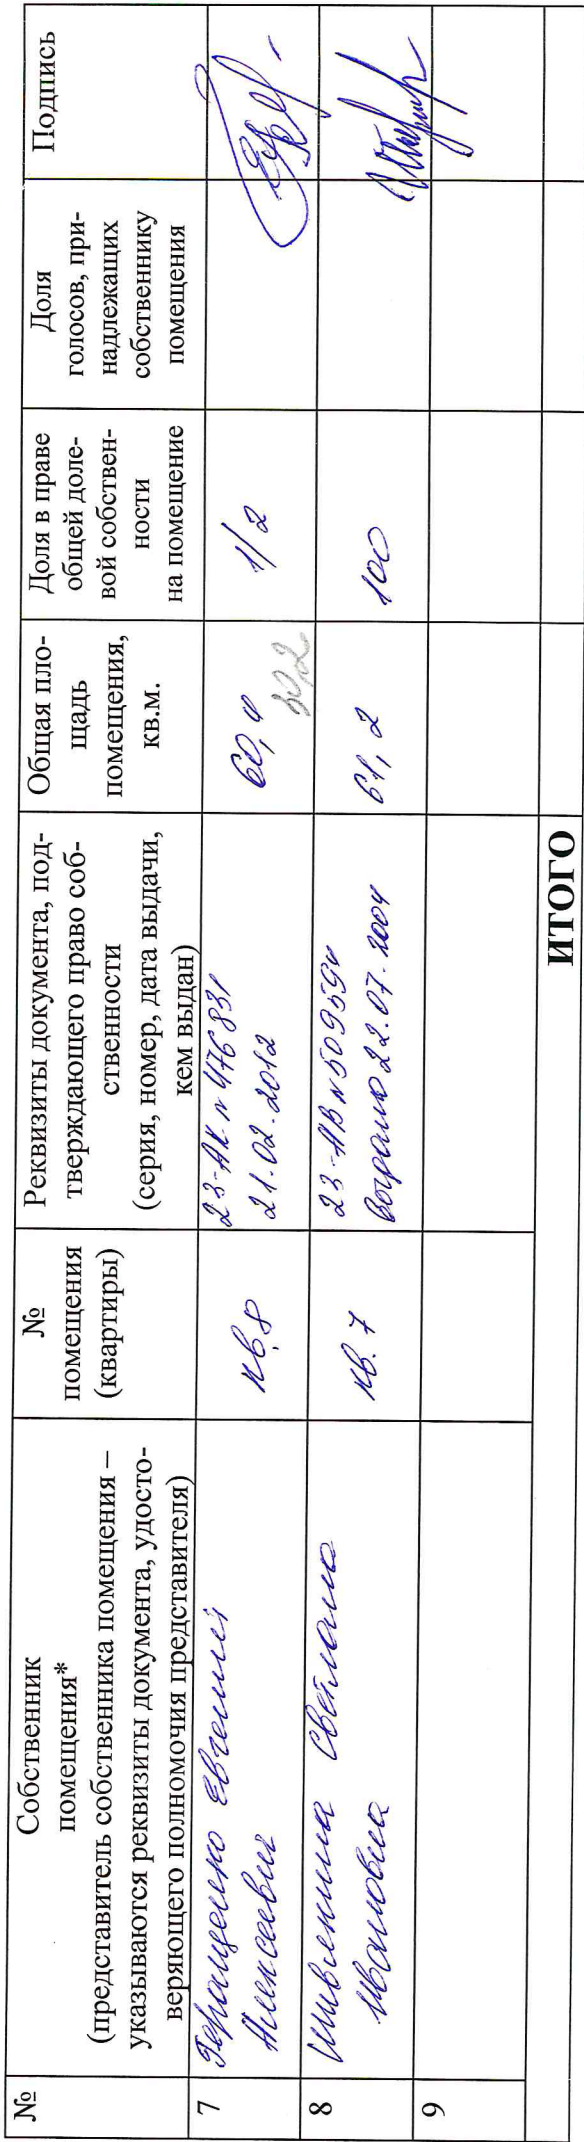 №
Собственник
помещения*
(представитель собственника помещения –
указываются реквизиты документа, удосто-
веряющего полномочия представителя)
№
помещения
(квартиры)
Реквизиты документа, под-
тверждающего право соб-
ственности
(серия, номер, дата выдачи,
кем выдан)
Общая пло-
щадь
помещения,
кв.м.
Доля в праве
общей доле-
вой собствен-
ности
на помещение
Доля
голосов, при-
надлежащих
собственнику
помещения
Подпись
7
Геращенко Евгений
Алексеевич
кв.8
23-АК № 476831
21.02.2012
60,4
30,2
1/2
8
Светлана
Ивановна
кв. 7
23-АВ № 509594
Выдано 22.07.2004
61,2
100
9
ИТОГО